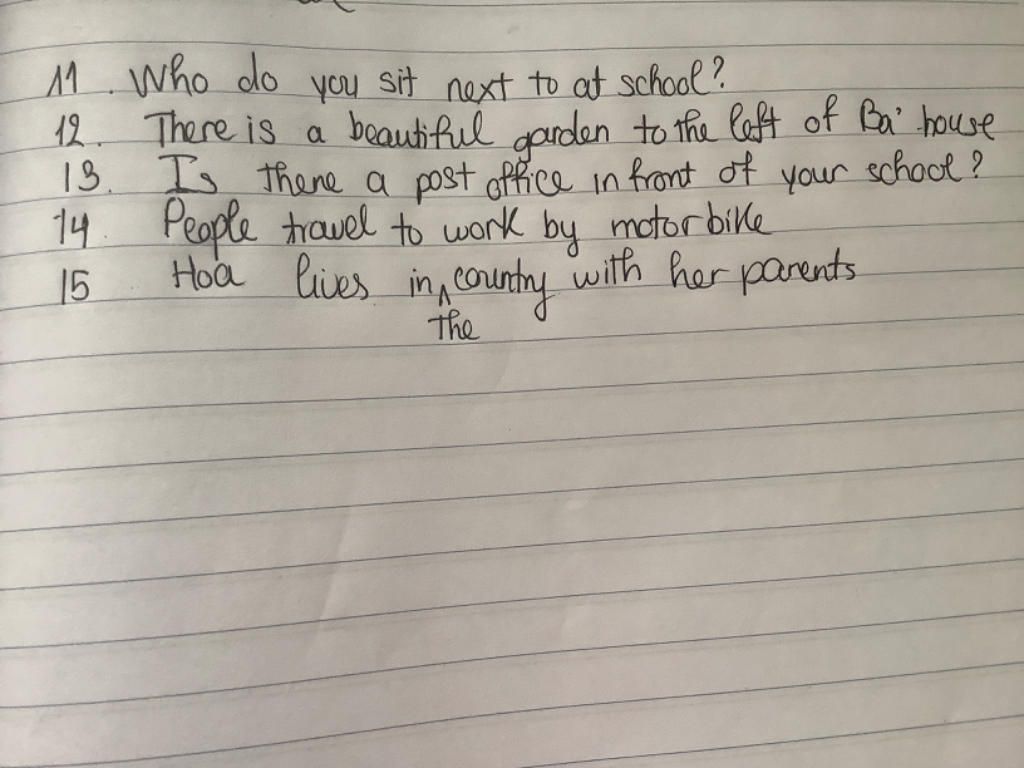 11. Who do you sit next to at school?
12. There is a beautiful garden to the left of Ba' house
13. Is there a post office in front of your school?
14 People travel to work by motorbike
15 Hoa lives in the country with her parents